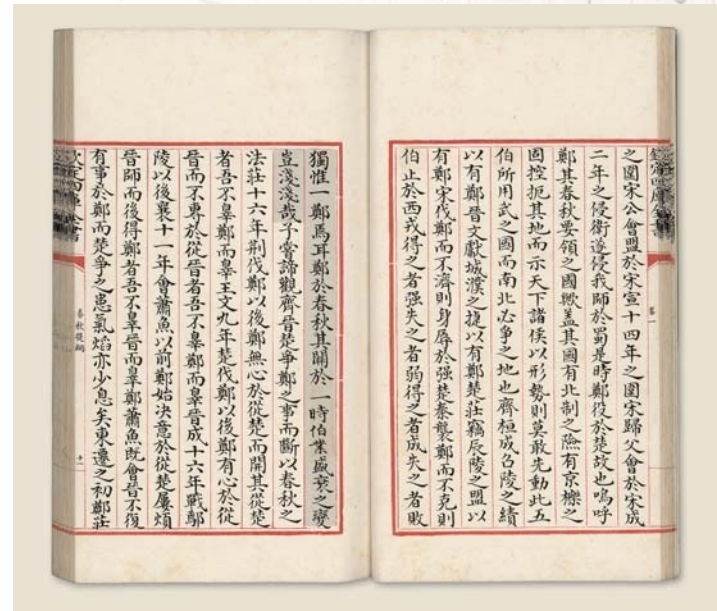 欽定四庫全書
卷一
之圍宋公會盟於宋宣十四年之圍宋歸父會於宋成
二年之侵衛遂侵我師於蜀是時鄭役於楚故也嗚呼
鄭其春秋要領之國歟盖其國有北制之險有京櫟之
固控扼其地而示天下諸侯以形勢則莫敢先動此五
伯所用武之國而南北必爭之地也齊桓成召陵之績
以有鄭晉文獻城濮之捷以有鄭楚莊竊辰陵之盟以
有鄭宋伐鄭而不濟則身辱於强楚秦襲鄭而不克則
伯止於西戎得之者强失之者弱得之者成失之者敗
獨惟一鄭焉耳鄭於春秋其關於一時伯業盛衰之變
豈淺淺哉予嘗諦觀齊晉楚爭鄭之事而斷以春秋之
法莊十六年荆伐鄭以後鄭無心於從楚而開其從楚
者吾不辠鄭而辠王文九年楚伐鄭以後鄭有心於從
晉而不專於從晉者吾不辠鄭而辠晉成十六年戰鄢
陵以後襄十一年會蕭魚以前鄭始決意於從楚屢煩
晉師而後得鄭者吾不辠晉而辠鄭蕭魚既會晉不復
有事於鄭而楚爭之患氣熖亦少息矣東遷之初鄭莊
欽定四庫全書
春秋提綱
十一